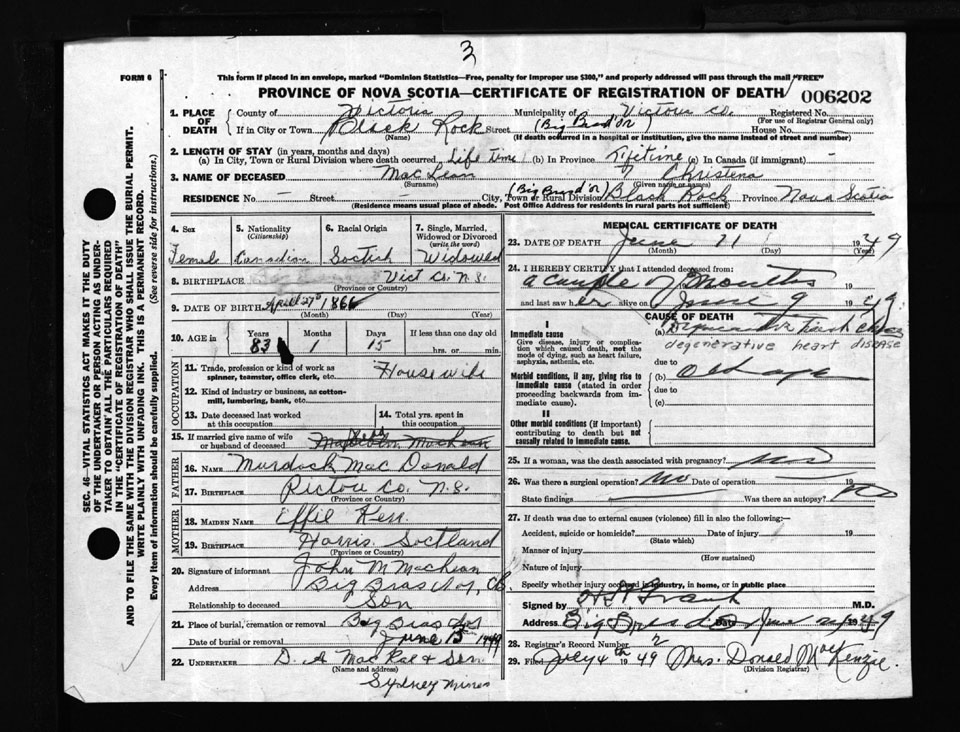 3
FORM 6
This form if placed in an envelope, marked "Dominion Statistics—Free, penalty for improper use $300," and properly addressed will pass through the mail "FREE"
PROVINCE OF NOVA SCOTIA—CERTIFICATE OF REGISTRATION OF DEATH 006202
SEC. 46—VITAL STATISTICS ACT MAKES IT THE DUTY
OF THE UNDERTAKER OR PERSON ACTING AS UNDER-
TAKER TO OBTAIN ALL THE PARTICULARS REQUIRED
IN THE "CERTIFICATE OF REGISTRATION OF DEATH"
AND TO FILE THE SAME WITH THE DIVISION REGISTRAR WHO SHALL ISSUE THE BURIAL PERMIT.
WRITE PLAINLY WITH UNFADING INK. THIS IS A PERMANENT RECORD.
Every item of information should be carefully supplied. (See reverse side for instructions.)
1. PLACE OF DEATH
County of Victoria Municipality of Victoria Co. Registered No.
(For use of Registrar General only)
If in City or Town Black Rock Street (Big Bras d'Or) House No.
(Name) (If death occurred in a hospital or institution, give the name instead of street and number)
2. LENGTH OF STAY (in years, months and days)
(a) In City, Town or Rural Division where death occurred Life time (b) In Province Lifetime (c) In Canada (if immigrant) -
3. NAME OF DECEASED MacLean Christena
(Surname) (Given name or names)
RESIDENCE No. — Street City, Town or Rural Division (Big Bras d'Or) Black Rock Province Nova Scotia
(Residence means usual place of abode. Post Office Address for residents in rural parts not sufficient)
4. Sex
Female
5. Nationality
(Citizenship)
Canadian
6. Racial Origin
Soctish
7. Single, Married,
Widowed or Divorced
(write the word)
Widowed
8. BIRTHPLACE Vict Co. N.S.
(Province or Country)
9. DATE OF BIRTH April 27th 1866
(Month) (Day) (Year)
10. AGE in
Years Months Days If less than one day old
83 1 15 hrs. or min.
OCCUPATION
11. Trade, profession or kind of work as
spinner, teamster, office clerk, etc. Housewife
12. Kind of industry or business, as cotton-
mill, lumbering, bank, etc.
13. Date deceased last worked
at this occupation
14. Total yrs. spent in
this occupation
15. If married give name of wife
or husband of deceased MacLean
FATHER
16. NAME Murdock MacDonald
17. BIRTHPLACE Pictou Co. N.S.
(Province or Country)
MOTHER
18. MAIDEN NAME Effie Kerr
19. BIRTHPLACE Harris Soctland
(Province or Country)
20. Signature of informant John M MacLean
Address Big Bras d'Or, C.B.
Relationship to deceased Son
21. Place of burial, cremation or removal Big Bras d'Or
Date of burial or removal June 13 1949
22. UNDERTAKER D. A. MacRae & Son
(Name and address)
Sydney Mines
MEDICAL CERTIFICATE OF DEATH
23. DATE OF DEATH June 11 1949
(Month) (Day) (Year)
24. I HEREBY CERTIFY that I attended deceased from:
a couple of months
and last saw her alive on June 9 1949
CAUSE OF DEATH
I
Immediate cause
Give disease, injury or complica-
tion which caused death, not the
mode of dying, such as heart failure,
asphyxia, asthenia, etc.
(a)
degenerative heart disease
due to
Morbid conditions, if any, giving rise to
immediate cause (stated in order
proceeding backwards from im-
mediate cause).
(b) Old age
due to
(c)
II
Other morbid conditions (if important)
contributing to death but not
causally related to immediate cause.
25. If a woman, was the death associated with pregnancy? no
26. Was there a surgical operation? No Date of operation 19
State findings Was there an autopsy? No
27. If death was due to external causes (violence) fill in also the following:—
Accident, suicide or homicide? Date of injury 19
(State which)
Manner of injury
(How sustained)
Nature of injury
Specify whether injury occurred in industry, in home, or in public place
Signed by M.D.
Address Big Bras d'Or Date June 1949
28. Registrar's Record Number 2
29. Filed July 4th 1949 Mrs. Donald MacKenzie.
(Division Registrar)